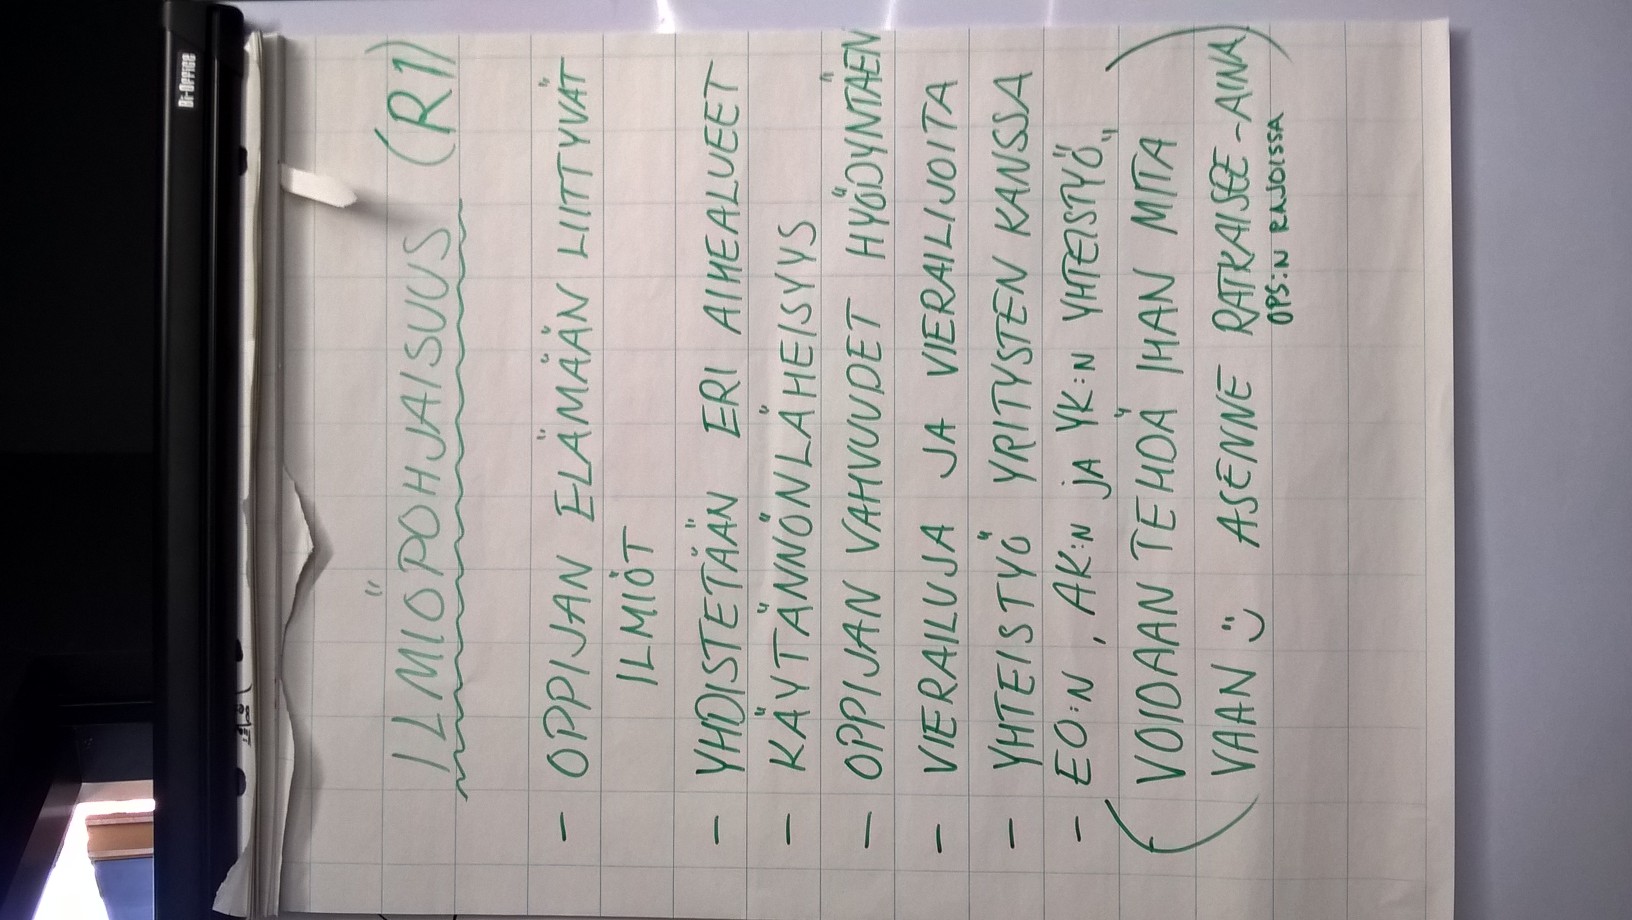 Bi-Office
ILMIÖPOHJAISUUS (R1)
- OPPIJAN ELÄMÄÄN LIITTYVÄT
ILMIÖT
- YHDISTETÄÄN ERI AIHEALUEET
- KÄYTÄNNÖNLÄHEISYYS
- OPPIJAN VAHVUUDET HYÖDYNTÄEN
- VIERAILUJA JA VIERAILIJOITA
- YHTEISTYÖ YRITYSTEN KANSSA
- EO:N, AK:N JA YK:N YHTEISTYÖ
(VOIDAAN TEHDÄ IHAN MITÄ
VAAN ASENNE RATKAISEE-AINA)
OPS:N RAJOISSA